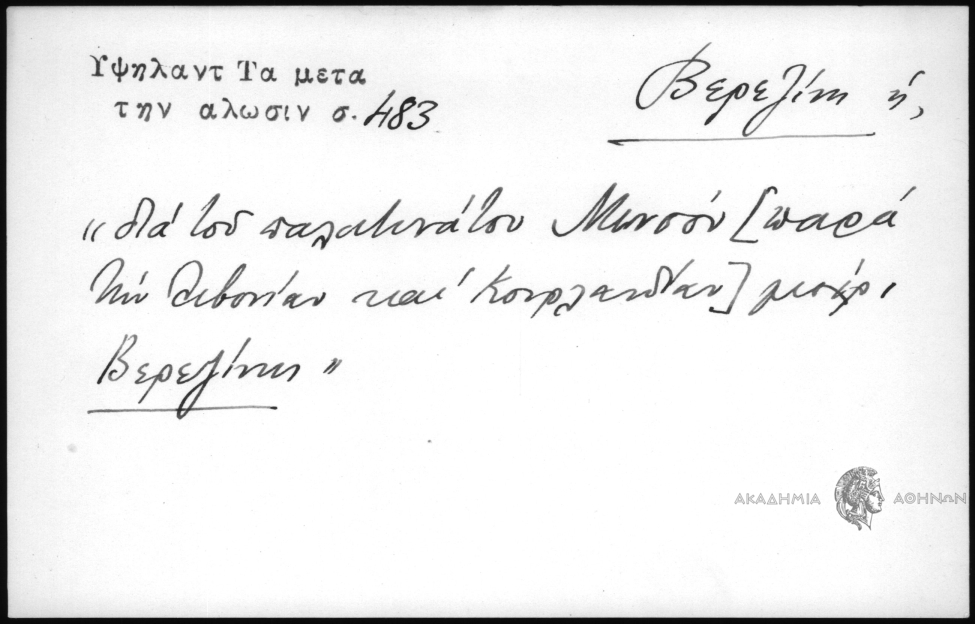 Υψηλαντ Τα μετα
την αλωσιν σ. 483
Βερεζίνη ἡ,
"διά τοῦ παλατινάτου Μινσόυ [παρά
τήν Λιβονίαν καί Κουρλανδίαν] μέχρι
Βερεζίνης"
ΑΚΑΔΗΜΙΑ ΑΘΗΝΩΝ